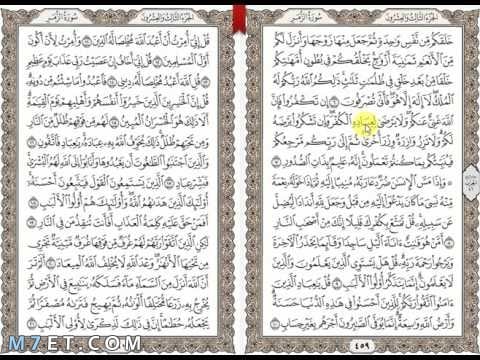 سورة الزمر
الجزء الثالث والعشرون
خلقكم من نفس وحدة ثم جعل منها زوجها وأنزل لكم
من الأنعم ثمنية أزوج يخلقكم في بطون أمهتكم
خلقا من بعد خلق في ظلمت ثلث ذلكم الله ربكم له
الملك لا إله إلا هو فأنى تصرفون ٦ إن تكفروا فإن
الله غني عنكم ولا يرضى لعباده الكفر وإن تشكروا يرضه
لكم ولا تزر وازرة وزر أخرى ثم إلى ربكم مرجعكم
فينبئكم بما كنتم تعملون إنه عليم بذات الصدور ٧
وإذا مس الإنسن ضر دعا ربه منيبا إليه ثم إذا خوله نعمة
منه نسي ما كان يدعوا إليه من قبل وجعل لله أندادا ليضل
عن سبيله قل تمتع بكفرك قليلا إنك من أصحب النار
٨ أمن هو قنت ءاناء اليل ساجدا وقائما يحذر الأخرة
ويرجوا رحمة ربه قل هل يستوي الذين يعلمون والذين
لا يعلمون إنما يتذكر أولوا الألبب ٩ قل يعباد الذين
ءامنوا اتقوا ربكم للذين أحسنوا في هذه الدنيا حسنة
وأرض الله وسعة إنما يوفى الصبرون أجرهم بغير حساب ١٠
٤٥٩
سورة الزمر
الجزء الثالث والعشرون
قل إني أمرت أن أعبد الله مخلصا له الدين ١١ وأمرت لأن أكون
أول المسلمين ١٢ قل إني أخاف إن عصيت ربي عذاب يوم عظيم
١٣ قل الله أعبد مخلصا له ديني ١٤ فاعبدوا ما شئتم من دونه
قل إن الخسرين الذين خسروا أنفسهم وأهليهم يوم القيمة
ألا ذلك هو الخسران المبين ١٥ لهم من فوقهم ظلل من النار
ومن تحتهم ظلل ذلك يخوف الله به عباده يعباد فاتقون ١٦
والذين اجتنبوا الطغوت أن يعبدوها وأنابوا إلى الله لهم البشرى
فبشر عباد ١٧ الذين يستمعون القول فيتبعون أحسنه
أولئك الذين هدىهم الله وأولئك هم أولوا الألبب ١٨
أفمن حق عليه كلمة العذاب أفأنت تنقذ من في النار ١٩
لكن الذين اتقوا ربهم لهم غرف من فوقها غرف مبنية تجري
من تحتها الأنهر وعد الله لا يخلف الله الميعاد ٢٠ ألم تر
أن الله أنزل من السماء ماء فسلكه ينبيع في الأرض ثم
يخرج به زرعا مختلفا ألونه ثم يهيج فترىه مصفرا ثم
يجعله حطما إن في ذلك لذكرى لأولي الألبب ٢١
M7ET.COM